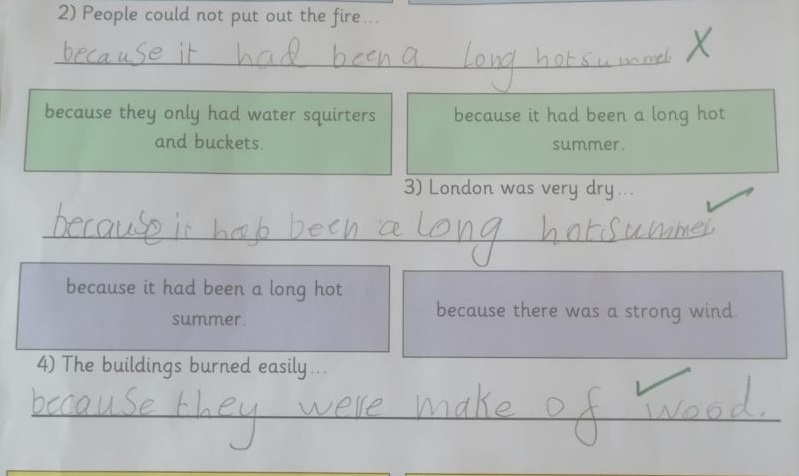 2) People could not put out the fire...
because it had been a long hot summer X
because they only had water squirters
and buckets.
because it had been a long hot
summer.
3) London was very dry...
because it hab been a long hot summer
because it had been a long hot
summer.
because there was a strong wind.
4) The buildings burned easily...
because they were make of wood.